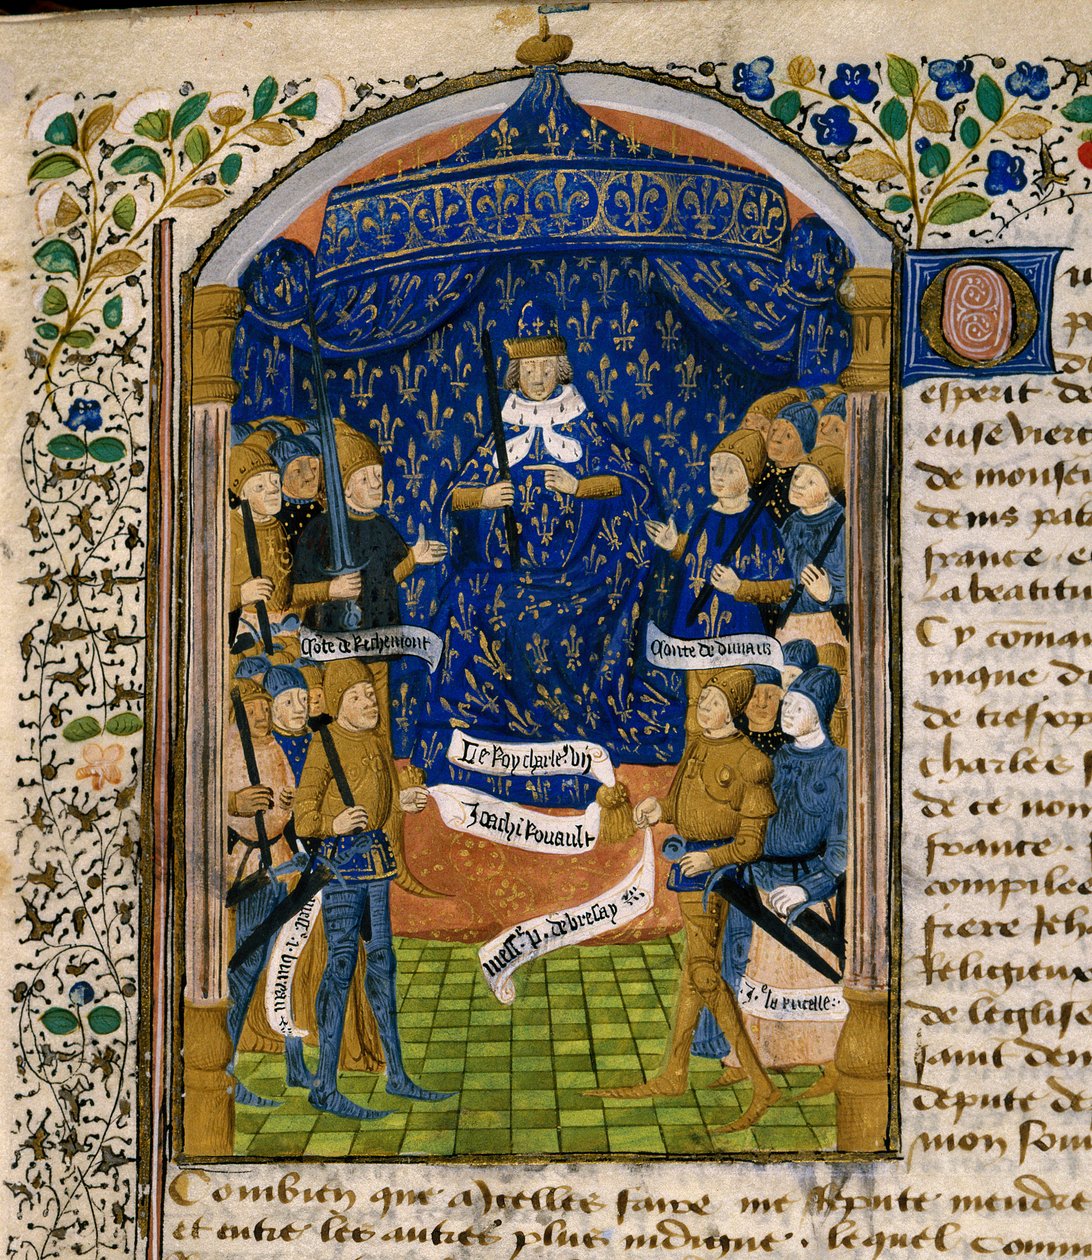 Cōte de Richemont
Conte de dunois
Le Roy charles vij
Joachi Rouault
messe p. de bresay
Je la pucelle
esperit de
euse vier
de monse
denis pat
france e
La beatitu
Cy coma
nique du
de tresxp
charles
de ce nom
france
compilee
frere Jeha
Religieux
de leglise
saint den
depute de
mon sou
Combien que a icelles faire me Repute mendre
et entre les autres plus indigne lequel comm